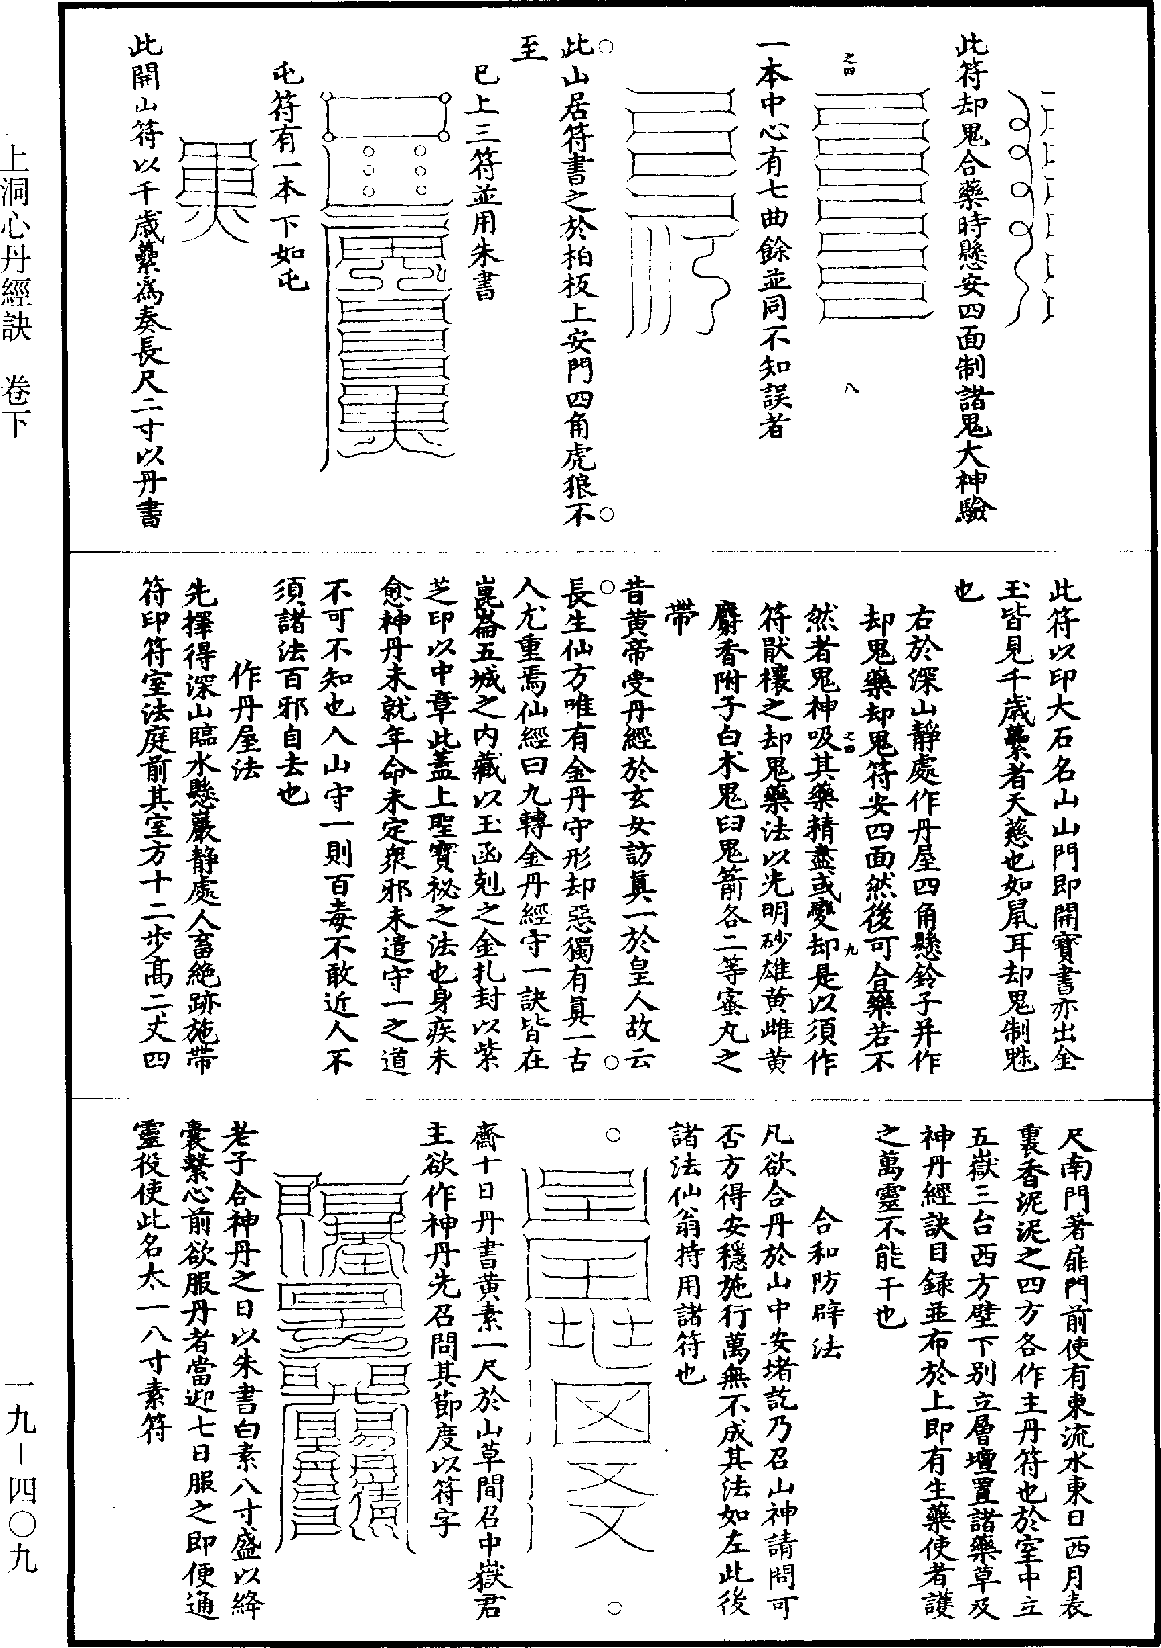 此符却鬼合藥時懸安四面制諸鬼大神驗
之四
八
一本中心有七曲餘並同不知誤者
此山居符書之於柏板上安門四角虎狼不
至
已上三符並用朱書
屯符有一本下如屯
此開山符以千歲虆爲奏長尺二寸以丹書
此符以印大石名山山門即開寶書亦出金
玉皆見千歲虆者天慈也如鼠耳却鬼制魅
也
右於深山靜處作丹屋四角懸鈴子并作
却鬼藥却鬼符安四面然後可合藥若不
之四
九
然者鬼神吸其藥精盡或變却是以須作
符猒禳之却鬼藥法以光明砂雄黄雌黄
麝香附子白木鬼臼鬼箭各二等蜜丸之
帶
昔黄帝受丹經於玄女訪眞一於皇人故云
長生仙方唯有金丹守形却惡獨有眞一古
人尤重焉仙經曰九轉金丹經守一訣皆在
崑崙五城之内藏以玉函剋之金札封以紫
芝印以中章此蓋上聖寶祕之法也身疾未
愈神丹未就年命未定衆邪未遣守一之道
不可不知也入山守一則百毒不敢近人不
須諸法百邪自去也
作丹屋法
先擇得深山臨水懸巖靜處人畜絶跡施帶
符印符室法庭前其室方十二步高二丈四
尺南門著扉門前使有東流水東日西月表
裏香泥泥之四方各作主丹符也於室中立
五嶽三台西方壁下別立層壇置諸藥草及
神丹經訣目録並布於上即有生藥使者護
之萬靈不能干也
合和防辟法
凡欲合丹於山中安堵訖乃召山神請問可
否方得安穩施行萬無不成其法如左此後
諸法仙翁持用諸符也
齋十日丹書黄素一尺於山草間召中嶽君
主欲作神丹先召問其節度以符字
老子合神丹之日以朱書白素八寸盛以絳
囊繫心前欲服丹者當迎七日服之即便通
靈役使此名太一八寸素符
上洞心丹經訣　卷下
一九—四〇九